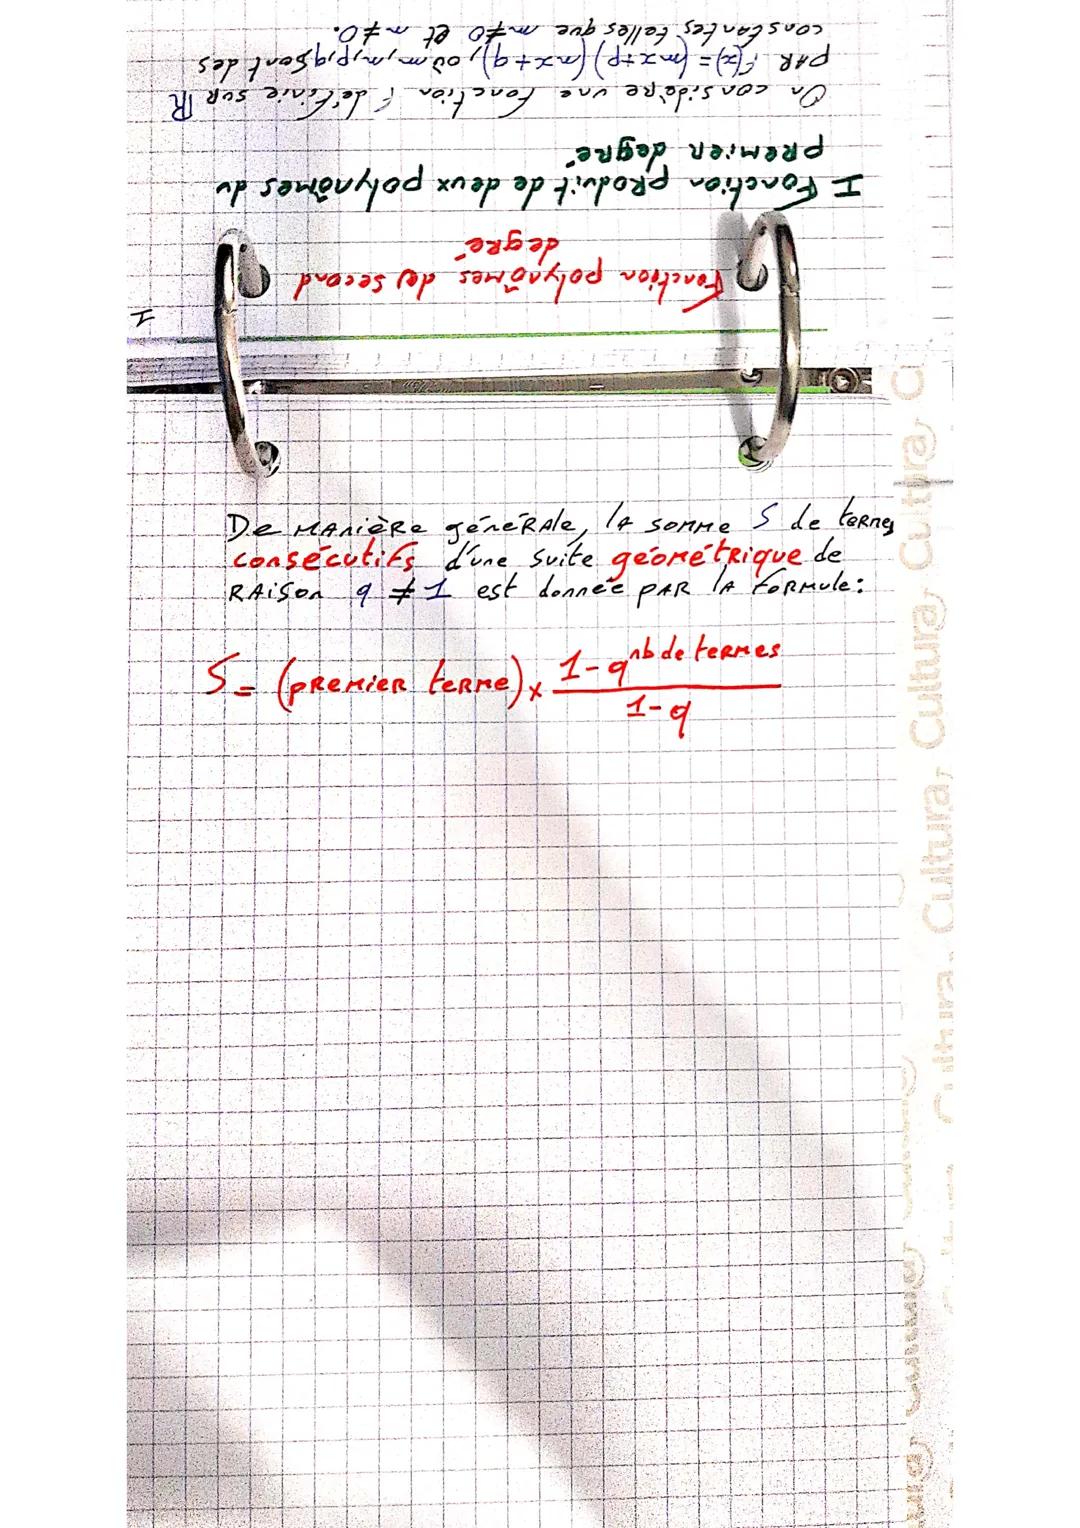 De manière générale, la somme S de termes
consécutifs d'une suite géométrique de
raison q ≠ 1 est donnée par la formule:
S = (premier terme) × (1-q^nb de termes)/(1-q)
1
Fonction polynômes de second
degré
I Fonction produit de deux polynômes du
premier degré
On considère une fonction f définie sur ℝ
par f(x) = (mx+p)(nx+q), où m, n, p, q sont des
constantes telles que m≠0 et n≠0.
Cultura
Cultura
Cultura
Cultura